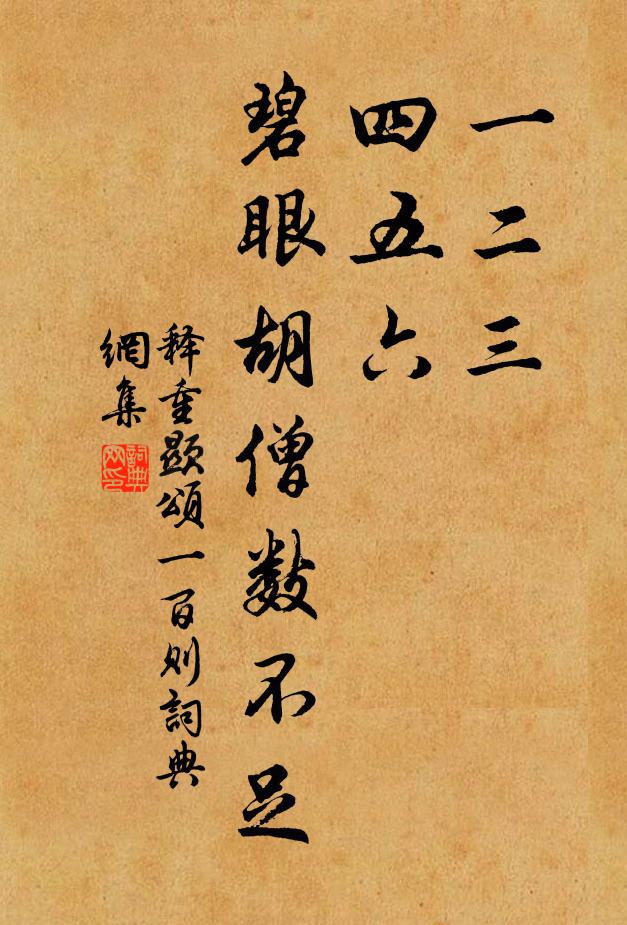 一二三
四五六
碧眼胡僧数不足
释重顯頌一百则詞典
網集
詞典
网印